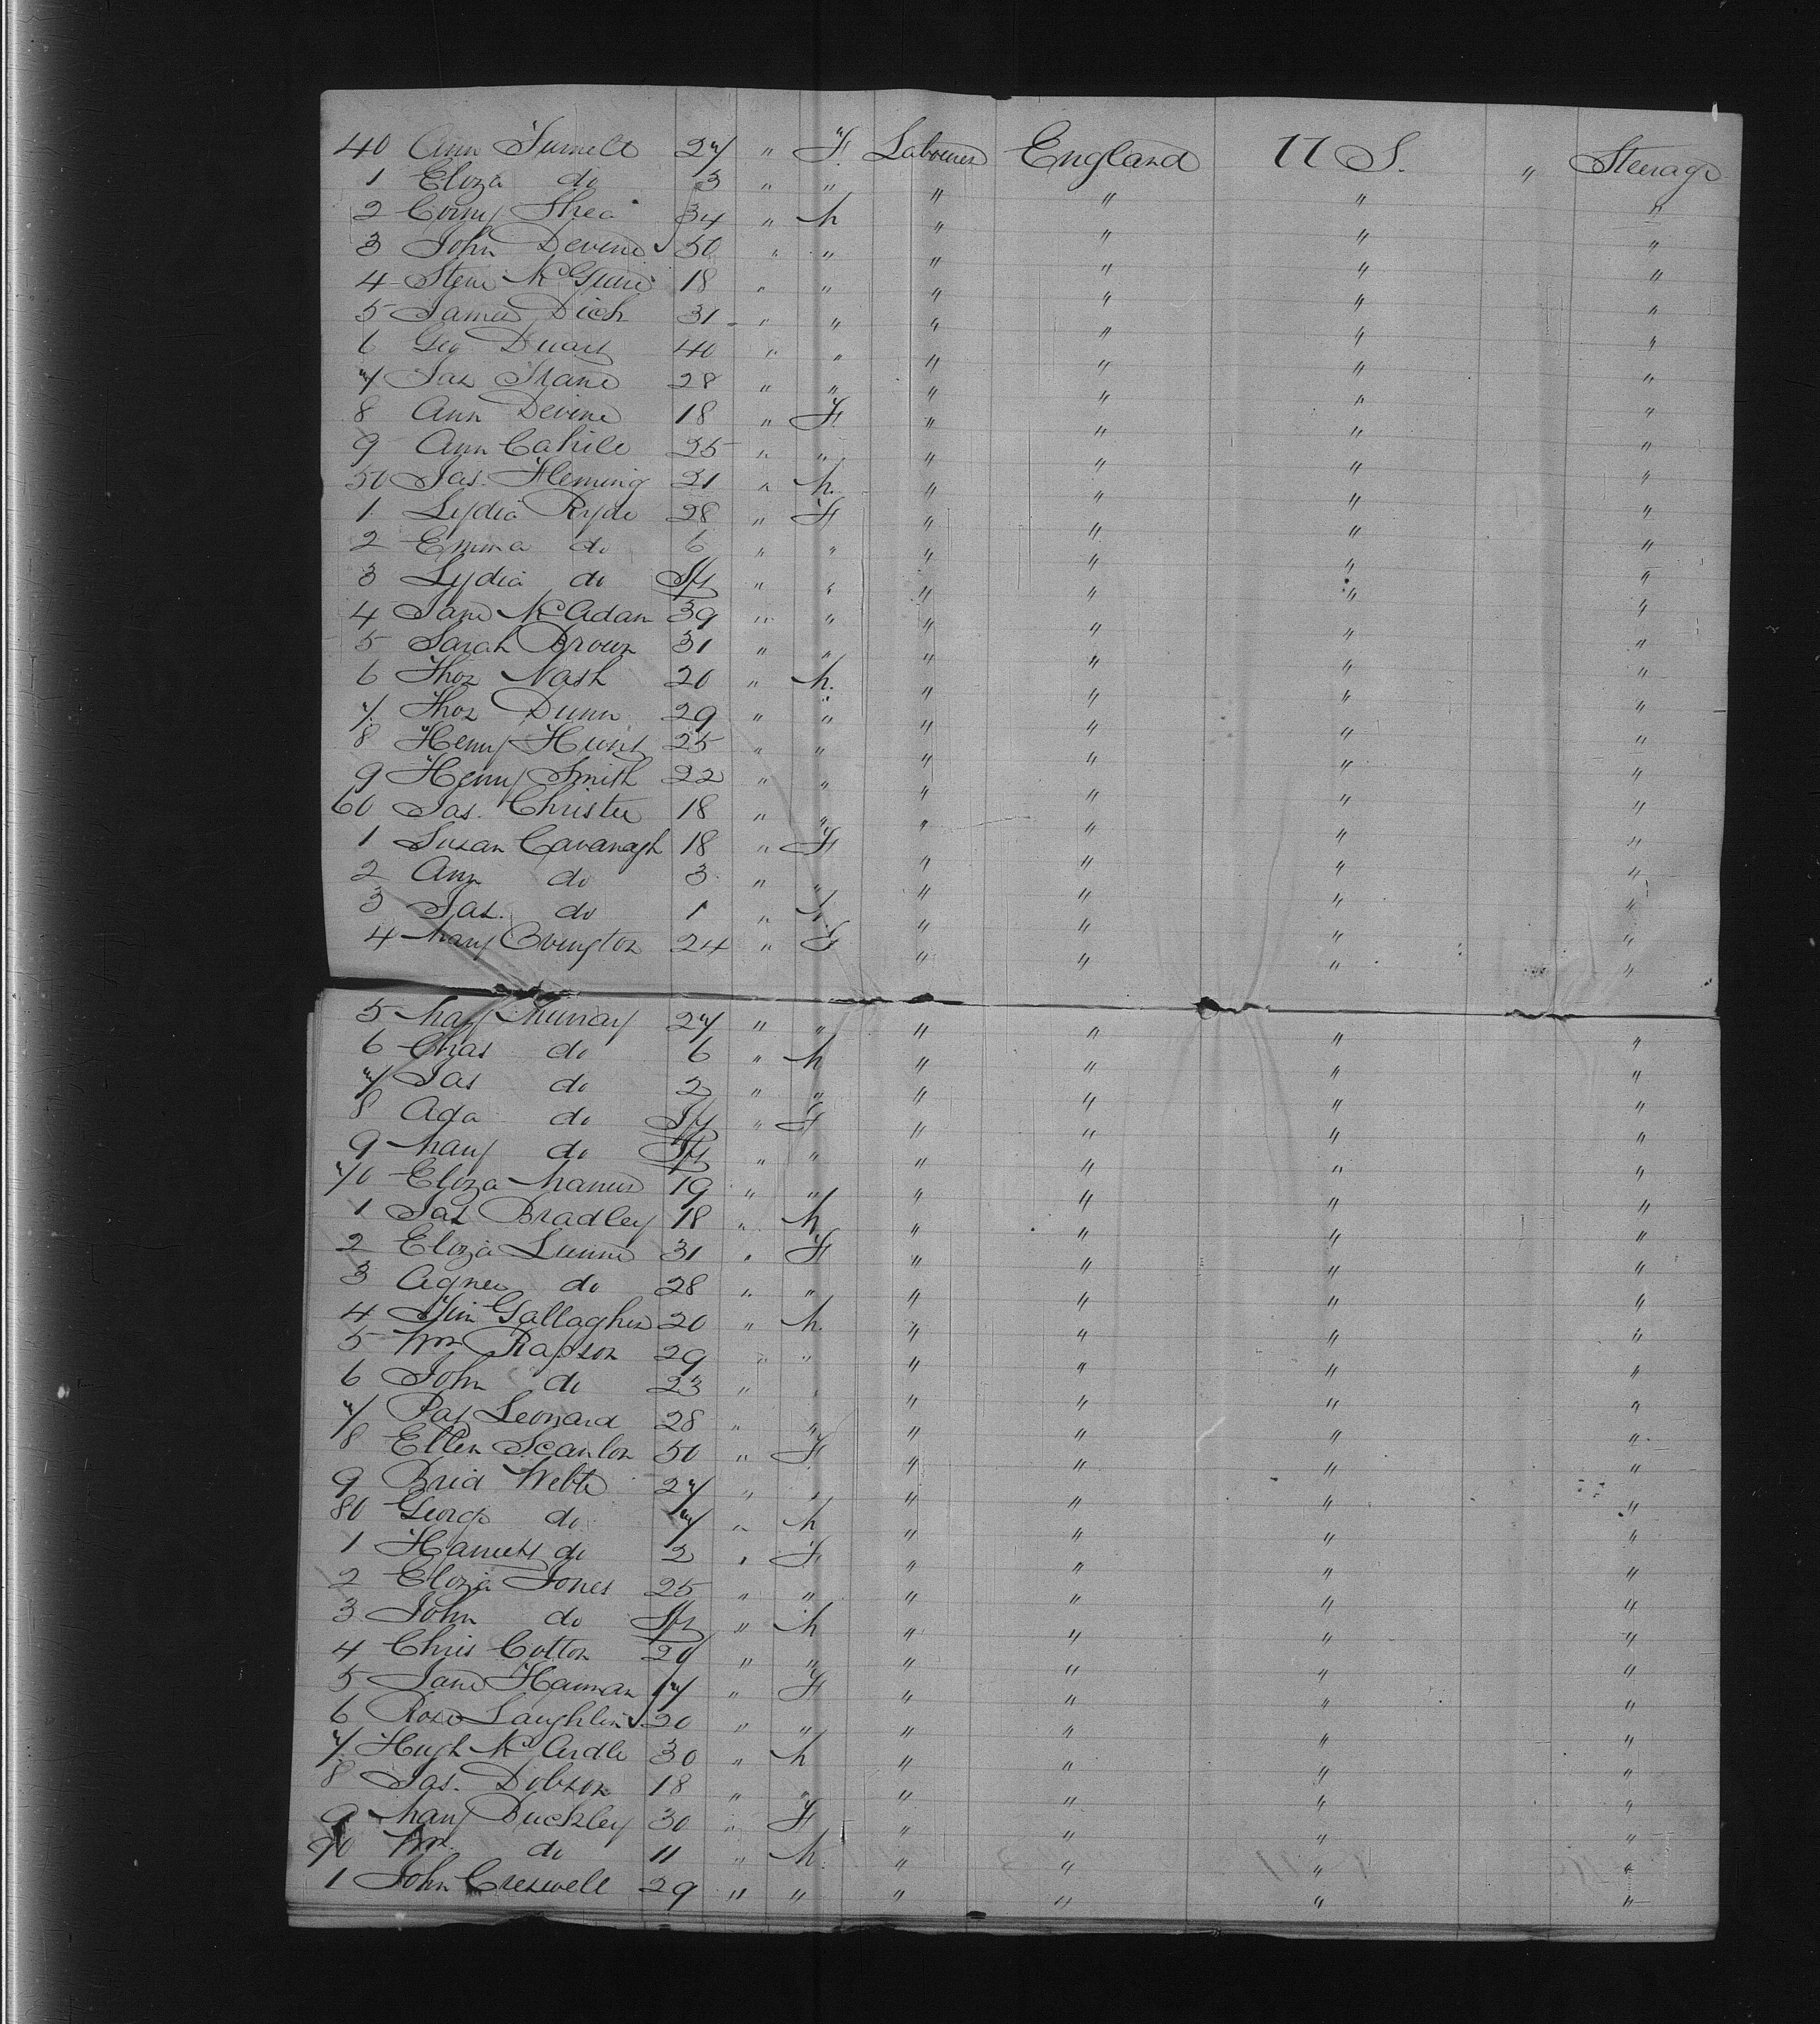 40 Ann Tumelt 27 " F. Labourer England U S. " Steerage
1 Eliza do 3 " " " " " "
2 Corny Shea 34 " M " " " "
3 John Devine 50 " " " " " "
4 Steve McGuire 18 " " " " " "
5 James Dick 31 " " " " " "
6 Geo 40 " " " " " "
7 Jas 28 " " " " " "
8 Ann Devine 18 " F " " " "
9 Ann Cahill 25 " " " " " "
50 Jas. Fleming 21 " M. " " " "
1 Lydia Ryde 28 " F " " " "
2 Emma do 6 " " " " " "
3 Lydia do Inft " " " " " "
4 Jane McAdam 39 " " " " " "
5 Sarah Brown 31 " " " " " "
6 Thos Nash 20 " M. " " " "
7 Thos Dunn 29 " " " " " "
8 Henry Hurst 25 " " " " " "
9 Henry Smith 22 " " " " " "
60 Jas. Christie 18 " " " " " "
1 Susan Cavanagh 18 " F " " " "
2 Ann do 3 " " " " " "
3 Jas. do 1 " M " " " "
4 Mary Ovington 24 " F " " " "
5 Mary Murray 27 " " " " " "
6 Chas do 6 " M " " " "
7 Jas do 2 " " " " " "
8 Ada do " F " " " "
9 Mary do Inft " " " " " "
70 Eliza 19 " " " " " "
1 Jas Bradley 18 " M " " " "
2 Eliza Lunne 31 " F " " " "
3 Agnes do 28 " " " " " "
4 Tim Gallagher 20 " M. " " " "
5 Wm Rapson 29 " " " " " "
6 John do 23 " " " " " "
7 Pat Leonard 28 " " " " " "
8 Ellen Scanlon 50 " F " " " "
9 Brid Webb 27 " " " " " "
80 George do 7 " M " " " "
1 Harriett do 2 " F " " " "
2 Eliza Jones 25 " " " " " "
3 John do Inft " M " " " "
4 Chris Cotton 29 " " " " " "
5 Jane Hannan 17 " F " " " "
6 Rose Laughlin 20 " " " " " "
7 Hugh McArdle 30 " M " " " "
8 Jas. Dobson 18 " " " " " "
9 Mary Buckley 30 " F " " " "
90 Wm. do 11 " M. " " " "
1 John Creswell 29 " " " " " "